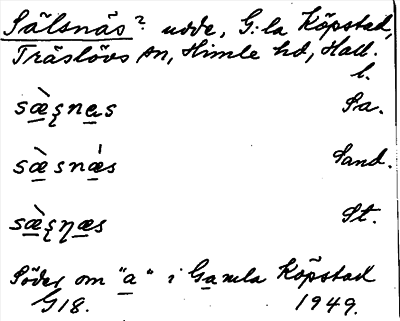 Sälsnäs? udde, G:la Köpstad,
Träslövs sn, Himle hd, Hall.
l.
sæ̀ʂnas Sa.
sæ̀snǽs Sand.
sæ̀ʂɳæs St.
Söder om "a" i Gamla Köpstad
G18. 1949.